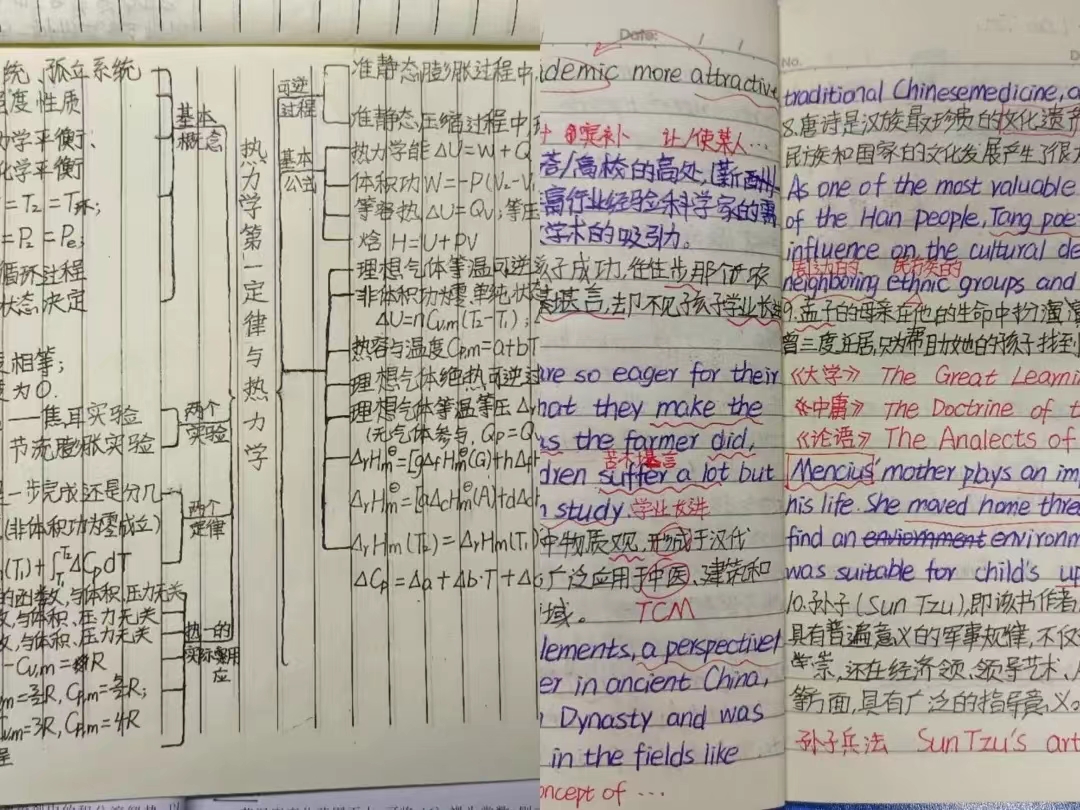 统、孤立系统
强度性质
力学平衡、
化学平衡
=T₂=T环;
=P₂=Pe;
循环过程
状态决定
度相等;
度为0.
—焦耳实验
节流膨胀实验
一步完成还是分几
(非体积功为零成立)
(T₁)+∫ΔCpdT
的函数,与体积,压力无关
与体积、压力无关
与体积、压力无关
R, Cp,m=
=3R, Cp,m=4R
程
基本
概念
两个
实验
两个
定律
热一的
实际
应
热力学第一定律与热力学
可逆
过程
基本
公式
准静态膨胀过程中,
准静态压缩过程中,
热力学能 ΔU=W+Q
体积功 W=-P(V₂-V₁
等容热 ΔU=Qv; 等压
焓 H=U+PV
理想气体等温可逆
非体积功为零,单纯状态
ΔU=nCv,m(T₂-T₁);
热容与温度 Cp,m=a+bT
理想气体绝热可逆过
理想气体等温等压
(无气体参与, Qp=Q
ΔrHm⊖=[gΔfHm⊖(G)+hΔf
ΔrHm⊖=[aΔcHm⊖(A)+dΔc
ΔrHm(T₂)=ΔrHm(T₁)
ΔCp=Δa+Δb·T+Δ
Date: / /
demic more attractive
补 让/使某人…
高校的高处, (薪酬
高行业经验科学家的需
学术的吸引力。
孩子成功, 往往步那个农
苗助长 去, 却不见孩子学业长进
are so eager for their
hat they make the
as the farmer did,
苦不堪言
dren suffer a lot but
study. 学业长进
中物质观, 形成于汉代
广泛应用于中医、建筑和
域。 TCM
lements, a perspective
er in ancient China,
Dynasty and was
in the fields like
oncept of …
No.
traditional Chinesemedicine, a
8.唐诗是汉族最珍贵的文化遗
民族和国家的文化发展产生了很
As one of the most valuable
of the Han people, Tang poe
influence on the cultural de
周边的 民族的
neighboring ethnic groups and
9.孟子的母亲在他的生命中扮演
曾三度迁居,只为帮助她的孩子找到
《大学》 The Great Learni
《中庸》 The Doctrine of t
《论语》 The Analects of
Mencius' mother plays an im
his life. She moved home thre
find an enviornment environm
was suitable for child's up
10.孙子(Sun Tzu),即该书作者,
具有普遍意义的军事规律, 不仅
学崇, 还在经济领、领导艺术、
等方面,具有广泛的指导意义。
孙子兵法 Sun Tzu's art